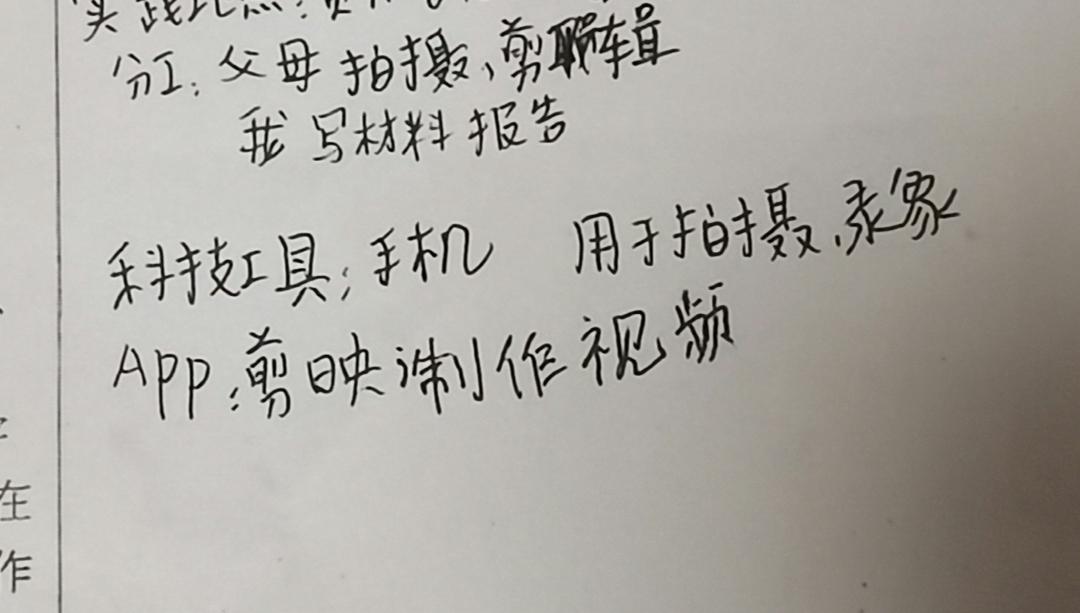 实践地点:
分工:父母拍摄、剪辑
我写材料报告
科技工具:手机 用于拍摄、录象
App:剪映制作视频
在
作